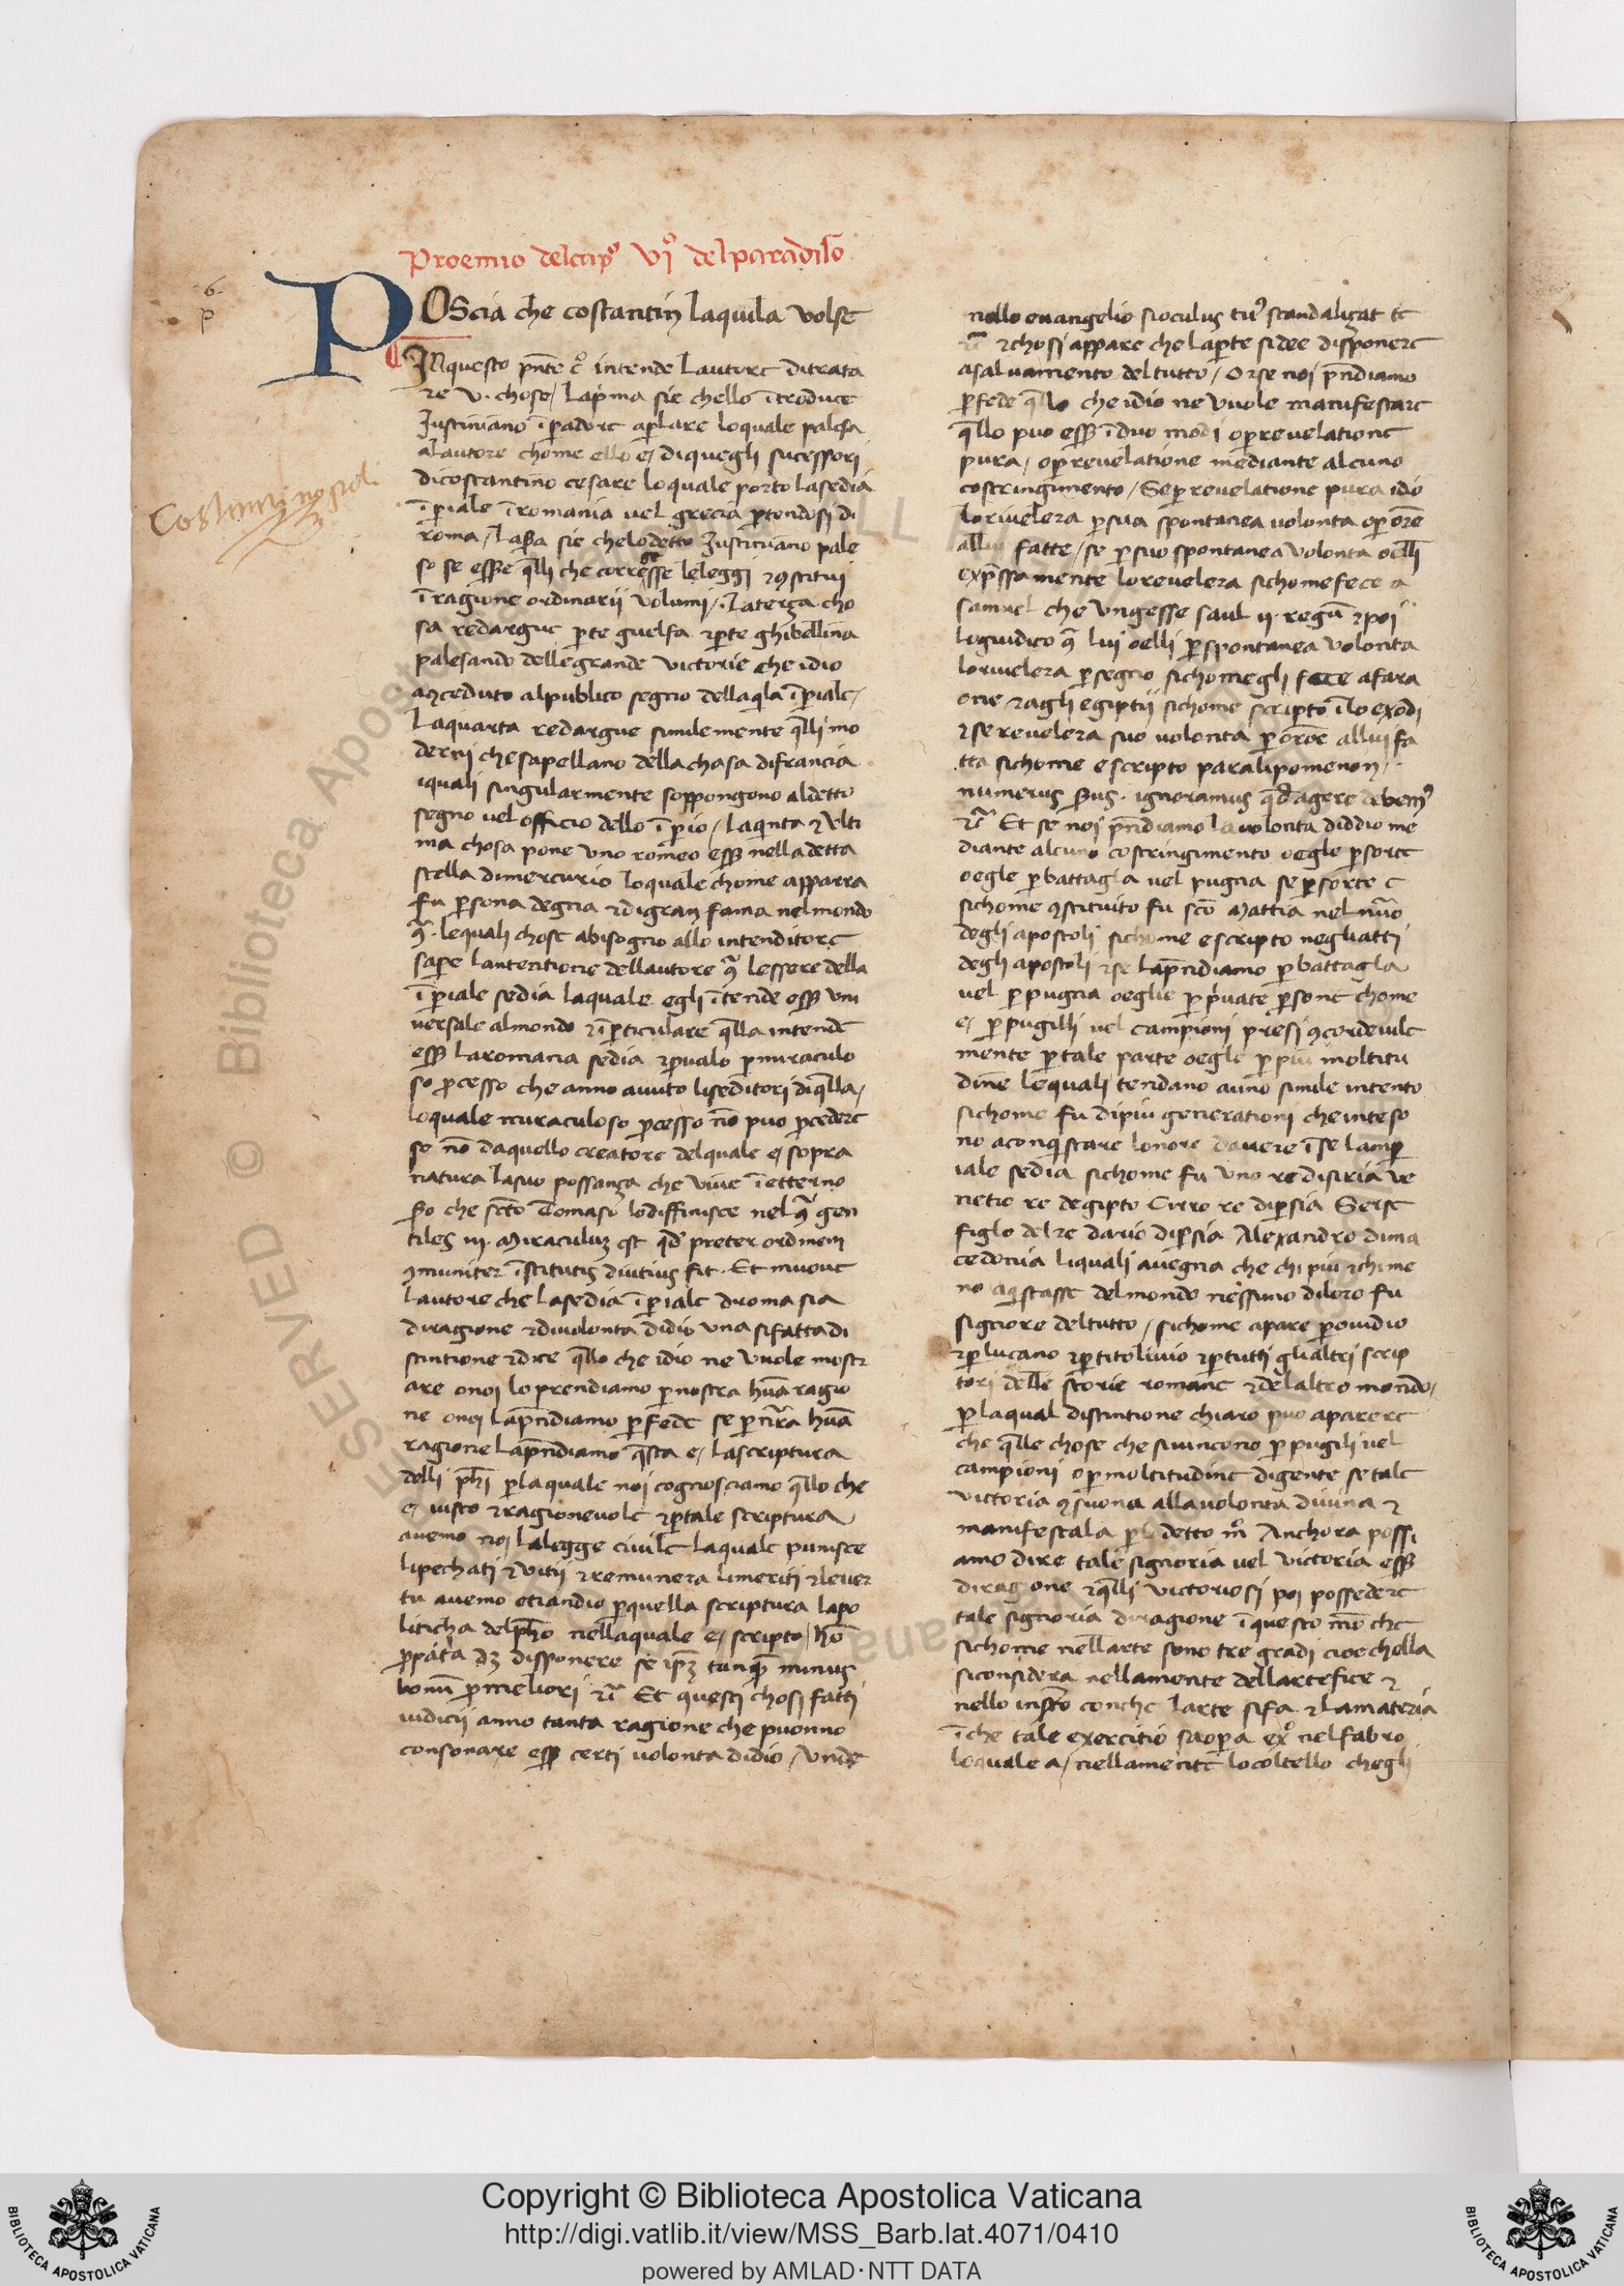 Proemio del capº vjº del paradiso
6
p
POScia che costantin laquila volse
INquesto pn̄te cº intende lautore ditrata
re v. chose / lap̄ma sie chello ītroduce
Justiniano īp̄adore ap̄lare loquale palesa
alautore chome ello e / diquegli sucessori
dicostantino cesare loquale porto lasedia
īp̄iale īromania vel grecia p̄tendosi di
roma / la sie chelo detto Justiniano pale
so se esse q̄lli che corresse le leggi ꝛ ꝯstitui
īragione ordinarii volumi / laterza cho
sa redargue p̄te guelfa ꝛ p̄te ghibellina
palesando dellegrande victorie che idio
aꝯceduto alpublico segno dellaq̄la īp̄iale /
Laquarta redargue similemente q̄lli mo
derni chesapellano della chasa difrancia
iquali singularmente soppongono aldetto
segno vel officio dello īp̄io / laqinta ꝛ vlti
ma chosa pone vno romeo ess̄ nelladetta
stella dimercurio loquale chome apparra
fu p̄sona degna ꝛ digran fama nelmondo
lequali chose abisogno allo intenditore
sap̄e lantentione dellautore lessere della
īp̄iale sedia laquale egli ītende ess̄ vni
versale almondo ꝛ īp̄ticulare q̄lla intende
ess̄ laromana sedia ꝛ p̄valo p̄miraculo
so p̄cesso che anno avuto liseditori diq̄lla /
loquale miraculoso p̄cesso nō puo p̄cedere
se nō daquello creatore delquale e / sopra
natura lasuo possanza che vive īetterno
che scō Tomaso lodiffinisce nel gen
tiles iij. Miraculuz est qd̄ preter ordinem
ꝯmuniter īstitutis divitius fit. Et muove
lautore che lasedia īp̄iale droma sia
diragione ꝛ divolonta didio vna sifatta di
stintione ꝛ dice q̄llo che idio ne vuole mostr
are onoi lo prendiamo p̄nostra hūa ragio
ne onoi lap̄ndiamo p̄fede se p̄nr̄a hūa
ragione lap̄ndiamo q̄sta e / lascriptura
delli ph̄i p̄laquale noi cognosciamo q̄llo che
e / iusto ꝛ ragionevole ꝛ p̄tale scriptura
avemo noi lalegge civile laquale punisce
lipechati ꝛ vitii ꝛ remunera limeriti ꝛ lever
tu avemo etiandio p̄quella scriptura lapo
liticha delph̄o nellaquale e / scripto / hō
disponere se ip̄z tanq̄ minus
bonū p̄meliori ꝛc̄ Et questi chosi fatti
iudicii anno tanta ragione che puonno
consonare ess̄ certi volonta didio / vnde
nello evangelio sioculus tuꝰ scandalizat te
ꝛc̄ ꝛ chosi appare che lap̄te sidee disponere
asalvamento deltutto / Orse noi p̄ndiamo
p̄fede q̄llo che idio ne vuole manifestare
q̄llo puo ess̄ īduo modi op̄revelatione
pura / op̄revelatione mediante alcuno
costringimento / Sep̄revelatione pura idio
lorivelera p̄sua spontanea volonta op̄
fatte / se p̄suo spontanea volonta oelli
exp̄ssamente lorevelera sichomefece a
samuel che vngesse saul ij. regū ꝛ poi
logiudico q̄ lui oelli p̄spontanea volonta
lorivelera p̄segno sichomegli fece afara
one ꝛ agli egiptii sichome scripto īlo exodi
ꝛ se revelera suo volonta p̄ allui fa
tta sichome e scripto paralipomenon /
numerus ignoramus qd̄ agere debemꝰ
ꝛc̄ Et se noi p̄ndiamo la volonta diddio me
diante alcuno costringimento oegle p̄sorte
oegle p̄battagla vel pugna se p̄sorte e
sichome ꝯstituito fu scō Mattia nel nūo
degli apostoli sichome e scripto negliatti
degli apostoli ꝛ se lap̄ndiamo p̄battagla
vel p̄pugna oeglie p̄p̄vate p̄sone chome
e / p̄pugilli vel campioni presi ꝯcordevile
mente p̄tale parte oegle p̄piu moltitu
dine lequali tendano auno simile intento
sichome fu dipiu generationi cheinteso
no aconqistare lonore davere īse lamp̄
iale sedia sichome fu vno re disiria ve
netio re degipto Cirro re dip̄sia Serse
figlo delre dario dip̄sia Alexandro dima
cedonia liquali avegna che chi piu ꝛ chi me
no aqistasse delmondo nessuno diloro fu
signore deltutto / sichome apare p̄ovidio
ꝛ p̄lucano ꝛ p̄titolivio ꝛ p̄tutti glialtri scrip
tori delle storie romane ꝛ delaltro mondo /
p̄laqual distintione chiaro puo aparere
che q̄lle chose che sivincono p̄pugili vel
campioni op̄moltitudine digente setale
victoria ꝯsuona allavolonta divina ꝛ
manifestala p̄lo detto mº Anchora possi
amo dire tale signoria vel victoria ess̄
diragione ꝛ q̄lli victoriosi poi possedere
tale signoria diragione īquesto mō che
sichome nellarte sono tre gradi cioe chella
siconsidera nellamente dellartefice ꝛ
nello instō conche larte sifa ꝛ lamateria
īche tale exercitio saop̄a exº nelfabro
loquale a / nellamente locoltello chegli
Copyright © Biblioteca Apostolica Vaticana
http://digi.vatlib.it/view/MSS_Barb.lat.4071/0410
powered by AMLAD·NTT DATA
BIBLIOTECA APOSTOLICA VATICANA
BIBLIOTECA APOSTOLICA VATICANA